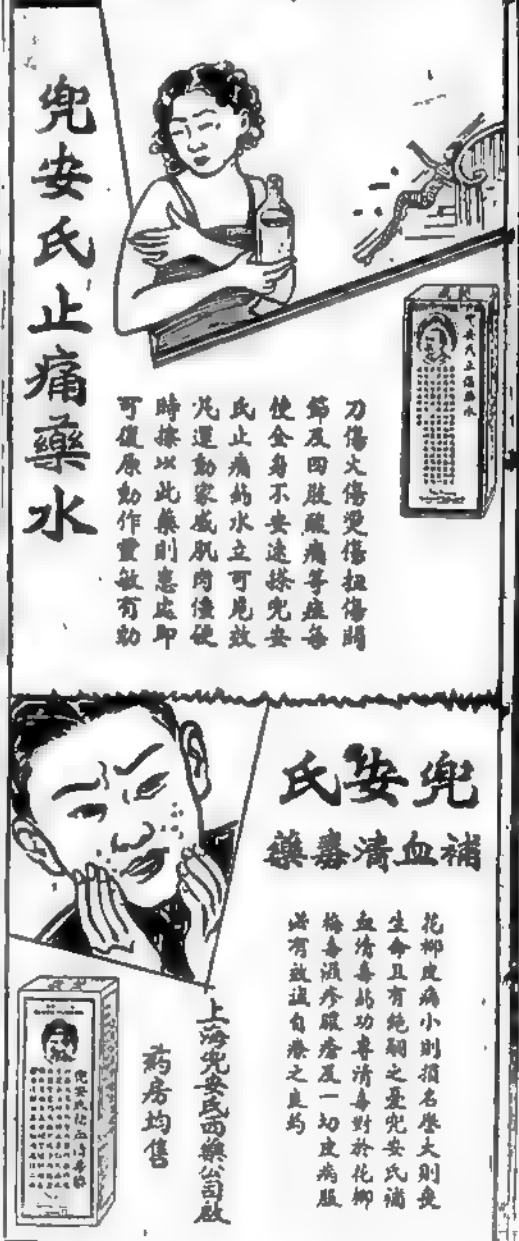 兜安氏止痛藥水
刀傷火傷燙傷扭傷關
節及四肢酸痛等症每
使全身不安速搽兜安
氏止痛葯水立可見效
凡運動家感肌肉僵硬
時搽以此藥則患處即
可復原動作靈敏有助
兜安氏
補血清毒藥
花柳皮病小則損名譽大則喪
生命且有絕嗣之憂兜安氏補
血清毒葯功專清毒對於花柳
梅毒濕疹膿瘡及一切皮病服
必有效誠自療之良葯
上海兜安氏西藥公司啟
葯房均售
兜安氏止傷藥水
兜安氏補血清毒藥